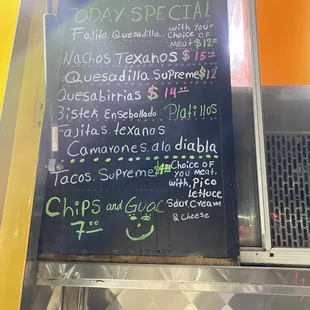 TODAY SPECIAL
Fajita Quesadilla.. with your
Choice OF
meat $12.00
Nachos Texanos $15.00
Quesadilla Supreme $12
Quesabirrias $14.00
Bistek Ensebollado Platillos
Fajitas texanas
Camarones. ala diabla
Tacos. Supreme Choice OF
you meat.
with, Pico
Lettuce
Sour Cream
& Cheese
Chips and Guac
7.00